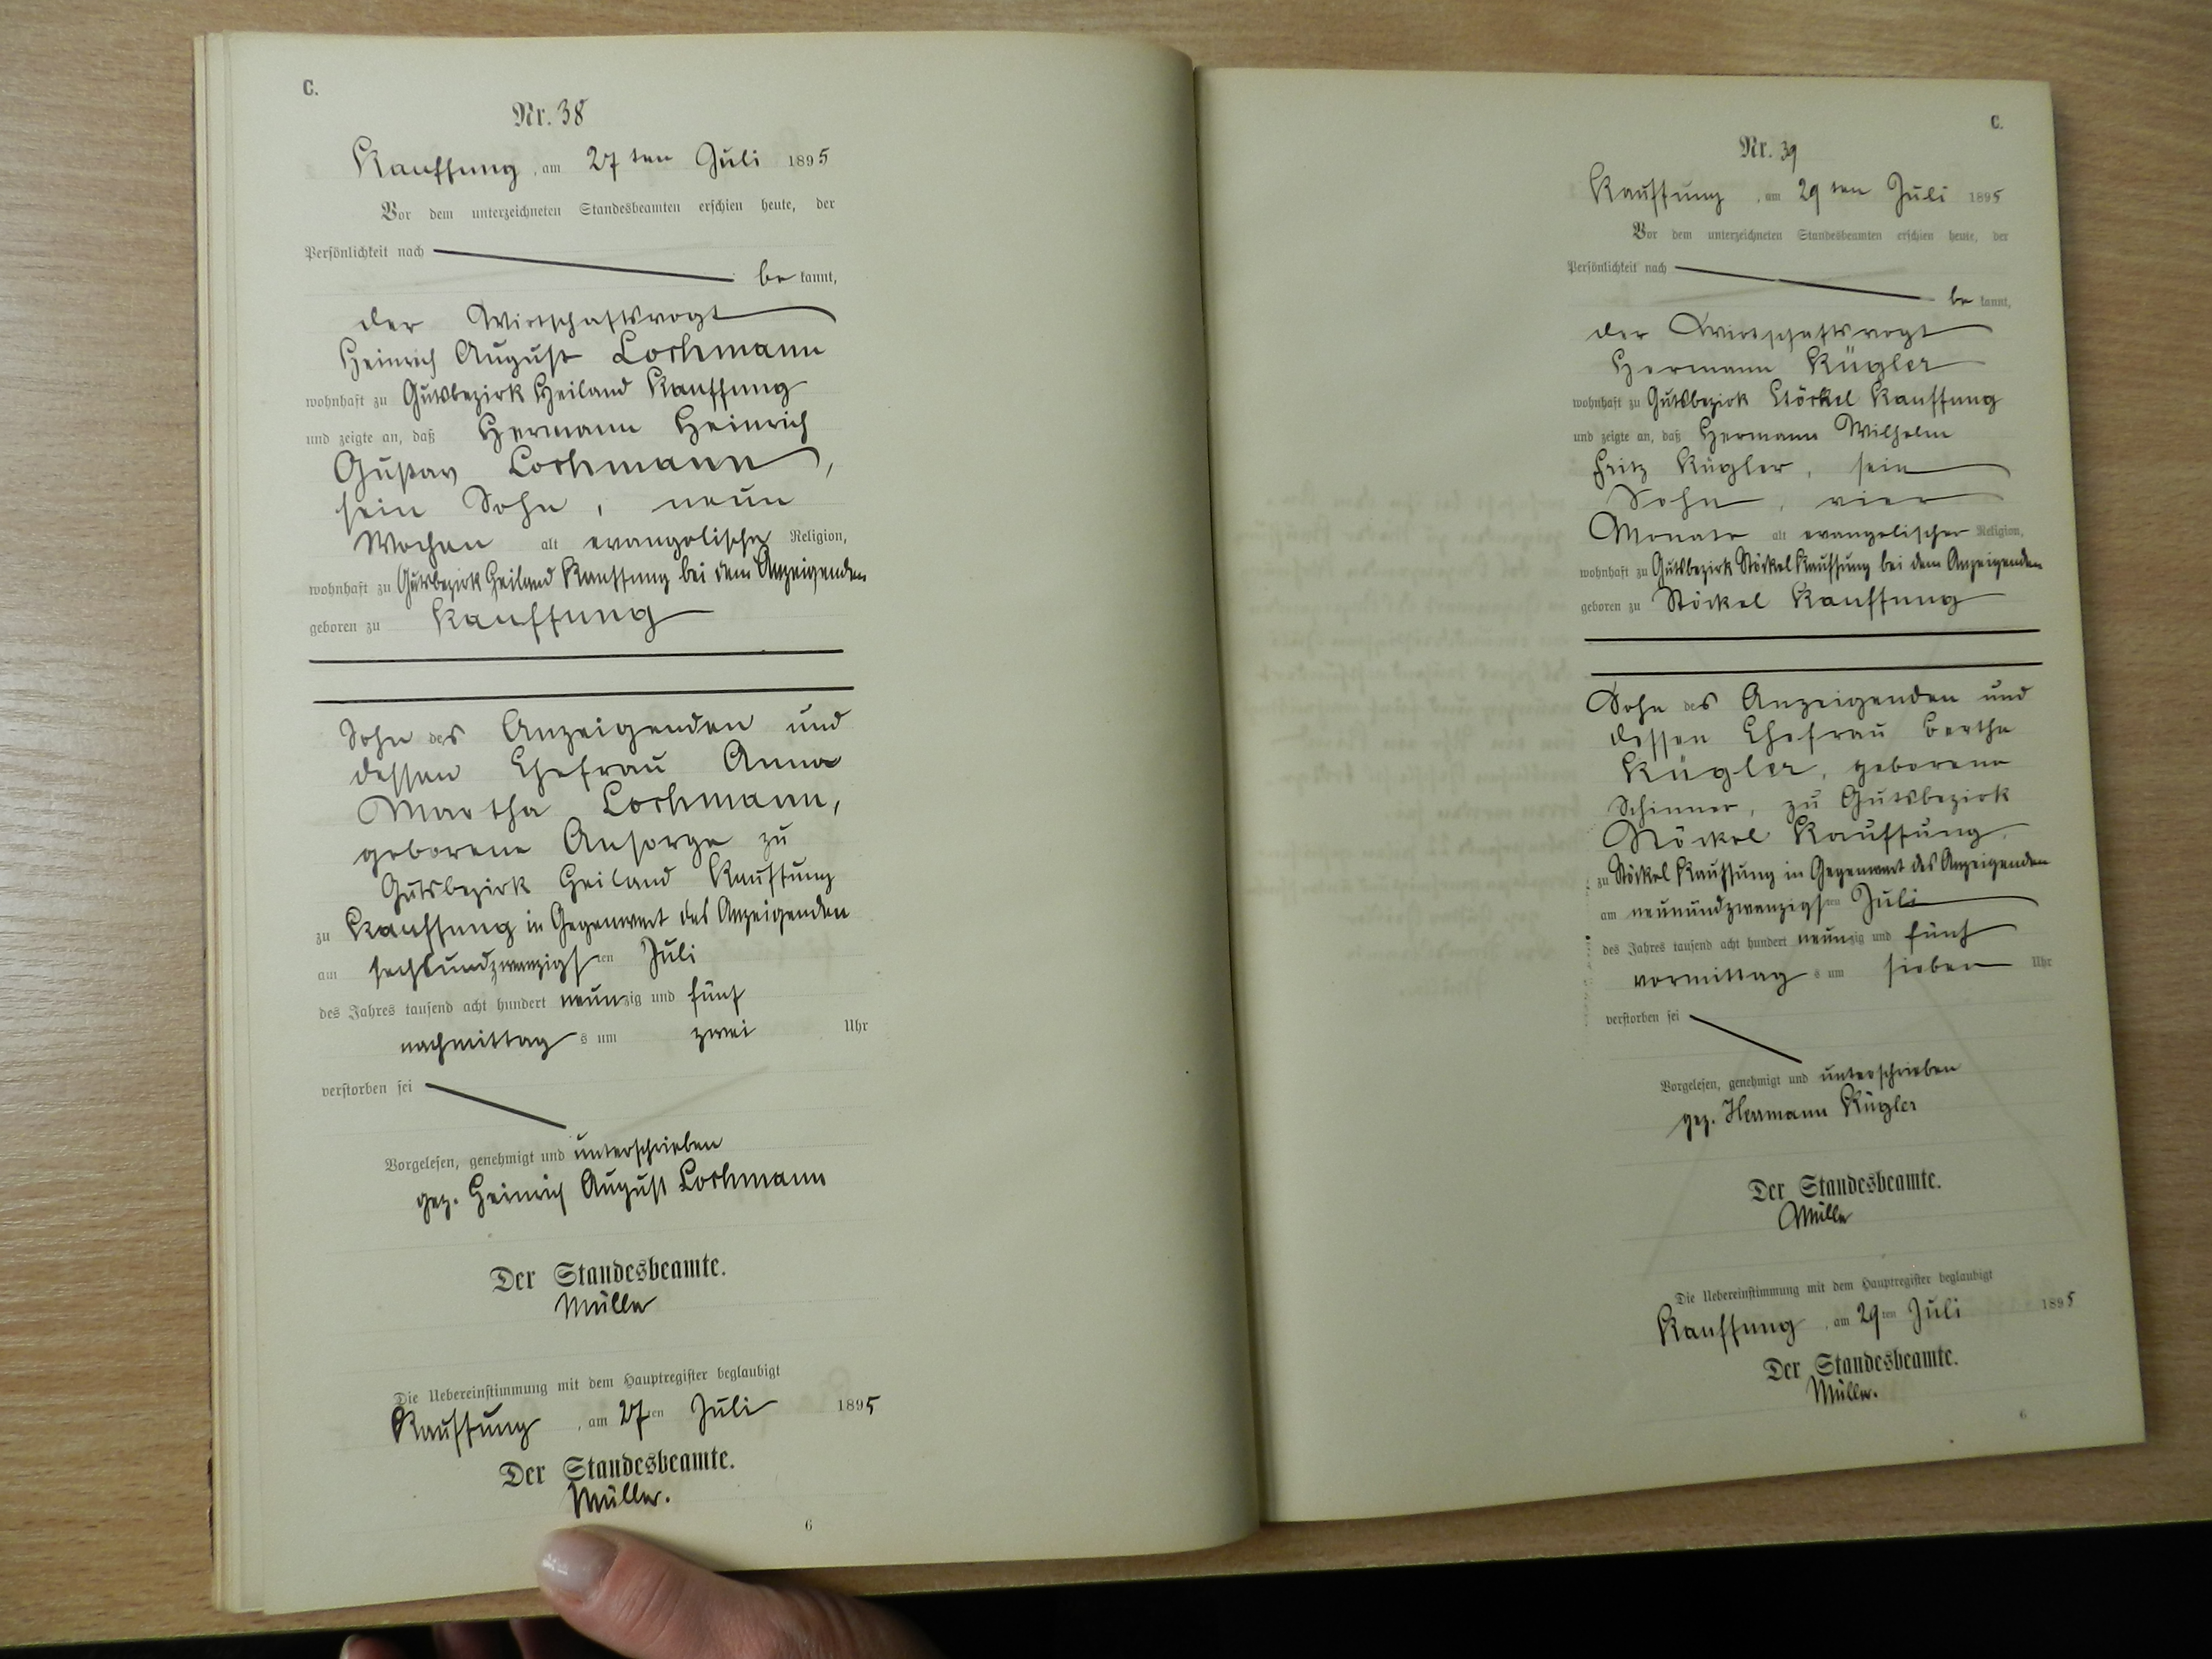 C.
Nr. 38
Kauffung, am 27 ten Juli 1895
Vor dem unterzeichneten Standesbeamten erschien heute, der
Persönlichkeit nach
be kannt,
der Wirtschaftsvogt
Heinrich August Lochmann
wohnhaft zu Gutsbezirk Heiland Kauffung
und zeigte an, daß Hermann Heinrich
Gustav Lochmann,
sein Sohn, neun
Wochen alt evangelischer Religion,
wohnhaft zu Gutsbezirk Heiland Kauffung bei dem Anzeigenden
geboren zu Kauffung
Sohn des Anzeigenden und
dessen Ehefrau Anna
Martha Lochmann,
geborene Ansorge zu
Gutsbezirk Heiland Kauffung
zu Kauffung in Gegenwart des Anzeigenden
am sechsundzwanzigsten Juli
des Jahres tausend acht hundert neunzig und fünf
nachmittag s um zwei Uhr
verstorben sei
Vorgelesen, genehmigt und unterschrieben
gez. Heinrich August Lochmann
Der Standesbeamte.
Müller
Die Uebereinstimmung mit dem Hauptregister beglaubigt
Kauffung, am 27ten Juli 1895
Der Standesbeamte.
Müller.
6
C.
Nr. 39
Kauffung, am 29 ten Juli 1895
Vor dem unterzeichneten Standesbeamten erschien heute, der
Persönlichkeit nach
be kannt,
der Wirtschaftsvogt
Hermann Kügler
wohnhaft zu Gutsbezirk Stöckel Kauffung
und zeigte an, daß Hermann Wilhelm
Fritz Kügler, sein
Sohn, vier
Monate alt evangelischer Religion,
wohnhaft zu Gutsbezirk Stöckel Kauffung bei dem Anzeigenden
geboren zu Stöckel Kauffung
Sohn des Anzeigenden und
dessen Ehefrau Bertha
Kügler, geborene
Schinner, zu Gutsbezirk
Stöckel Kauffung,
zu Stöckel Kauffung in Gegenwart des Anzeigenden
am neunundzwanzigsten Juli
des Jahres tausend acht hundert neunzig und fünf
vormittag s um sieben Uhr
verstorben sei
Vorgelesen, genehmigt und unterschrieben
gez. Hermann Kügler
Der Standesbeamte.
Müller
Die Uebereinstimmung mit dem Hauptregister beglaubigt
Kauffung, am 29ten Juli 1895
Der Standesbeamte.
Müller.
6